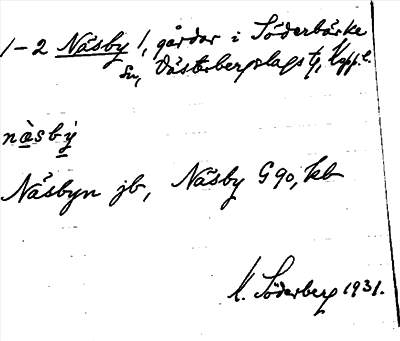 1-2 Näsby 1, gårdar i Söderbärke
sn, Västerbergslags tg, Kopp.l.
näsbý
Näsbyn jb, Näsby G 90, kb
K. Söderberg 1931.